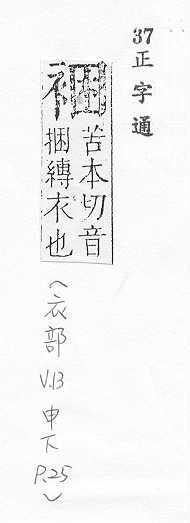 37
正字通
裍
苦本切音
捆縛衣也
(衣部 V.13 申下 P.25)